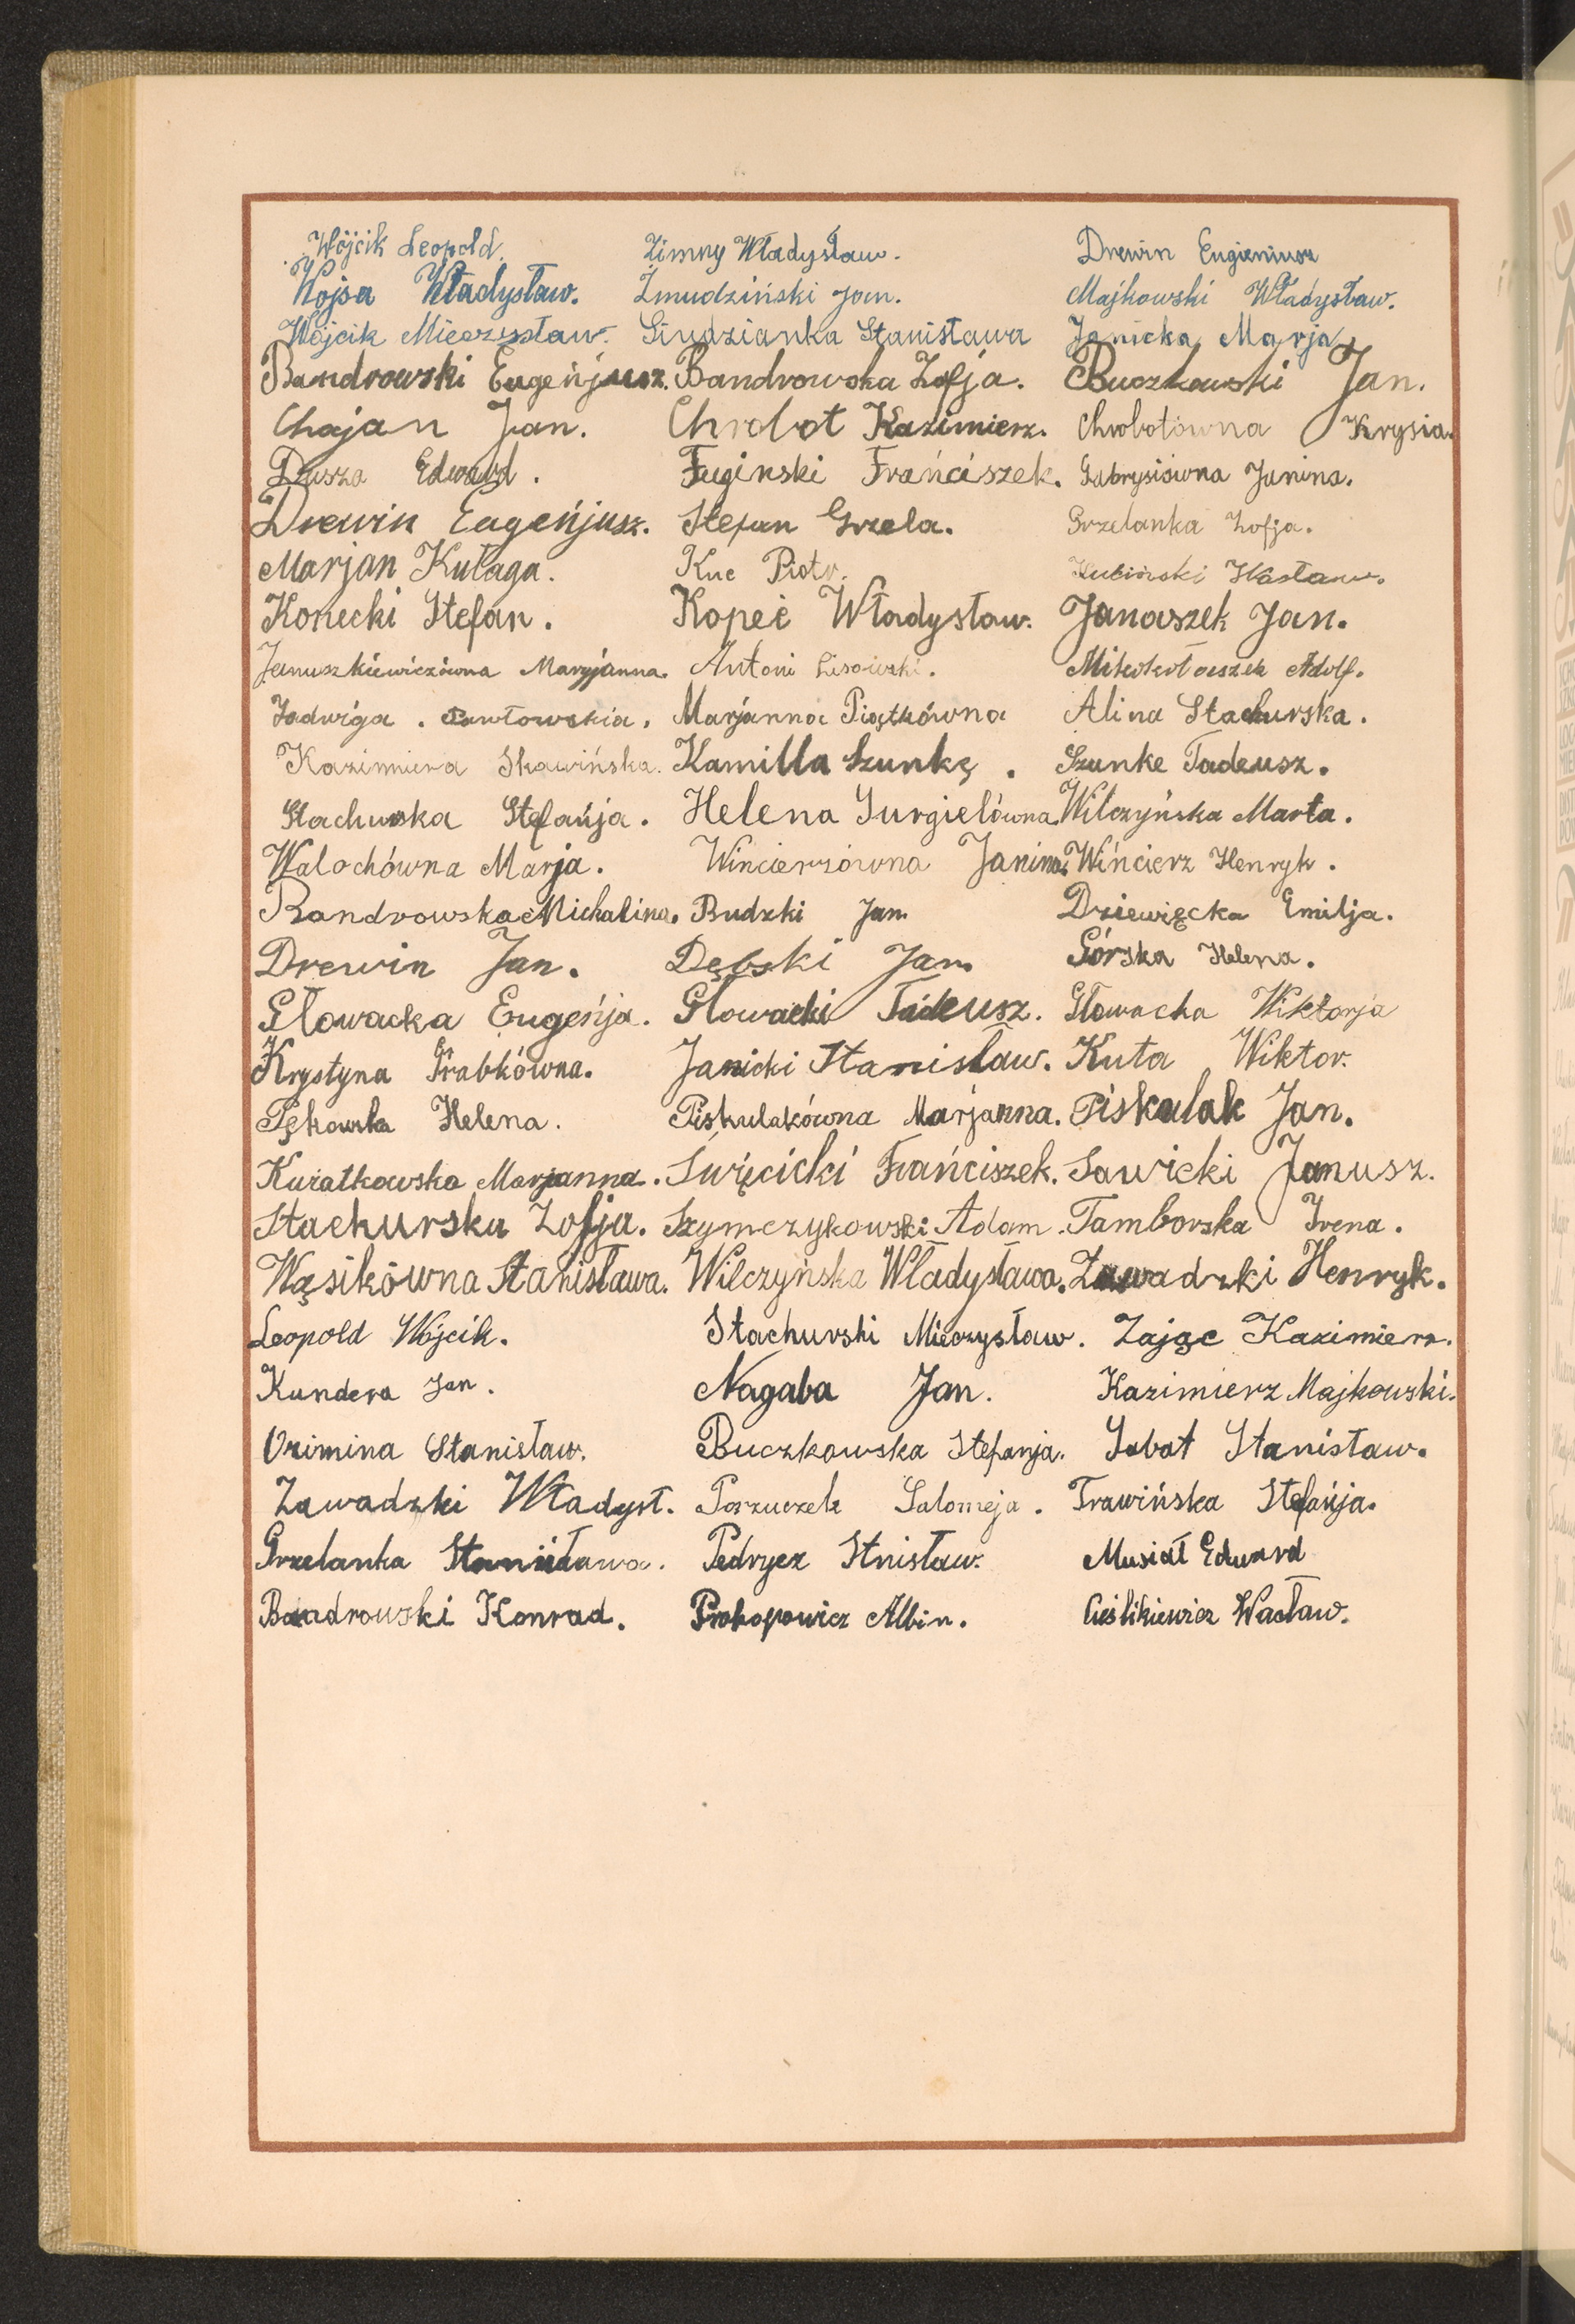 Wójcik Leopold. Zimny Władysław. Drewin Eugieniusz
Wojsa Władysław. Żmudziński Jan. Majkowski Władysław.
Wójcik Mieczysław. Siudzianka Stanisława Janicka Marja
Bandrowski Eugeńjusz. Bandrowska Zofja. Buczkowski Jan.
Chajan Jan. Chrobot Kazimierz. Chrobotówna Krysia.
Dusza Edward. Fuginski Frańciszek. Gabrysiówna Janina.
Drewin Eugeńjusz. Stefan Grzela. Grzelanka Zofja.
Marjan Kułaga. Kuc Piotr.
Konecki Stefan. Kopeć Władysław. Janaszek Jan.
Januszkiewiczówna Maryjanna. Antoni Lisowski. Adolf.
Jadwiga. Pawłowskia. Marjanna Piątkówna Alina Stachurska.
Kazimiera Skawińska. Kamilla Szunkę. Szunke Tadeusz.
Stachurska Stefańja. Helena Jurgielówna. Wilczyńska Marta.
Walochówna Marja. Wincierzówna Janina. Wińcierz Henryk.
Bandrowska Michalina. Budzki Jan Dziewięcka Emilja.
Drewin Jan. Dębski Jan. Górska Helena.
Głowacka Eugeńja. Głowacki Tadeusz. Głowacka Wiktorja
Krystyna Grabkówna. Janicki Stanisław. Kuta Wiktor.
Pękowska Helena. Piskulakówna Marjanna. Piskulak Jan.
Kwiatkowska Marjanna. Święcicki Frańciszek. Sawicki Janusz.
Stachurska Zofja. Szymczykowski Adam. Tamborska Irena.
Wąsikówna Stanisława. Wilczyńska Władysława. Zawadzki Henryk.
Leopold Wójcik. Stachurski Mieczysław. Zając Kazimierz.
Kundera Jan. Nagaba Jan. Kazimierz Majkowski.
Ozimina Stanisław. Buczkowska Stefanja. Sabat Stanisław.
Zawadzki Władysł. Porzuczek Salomeja. Trawińska Stefańja.
Grzelanka Stanisława. Pedrycz Stnisław. Musiał Edward
Bandrowski Konrad. Prokopowicz Albin. Cieślikiewicz Wacław.